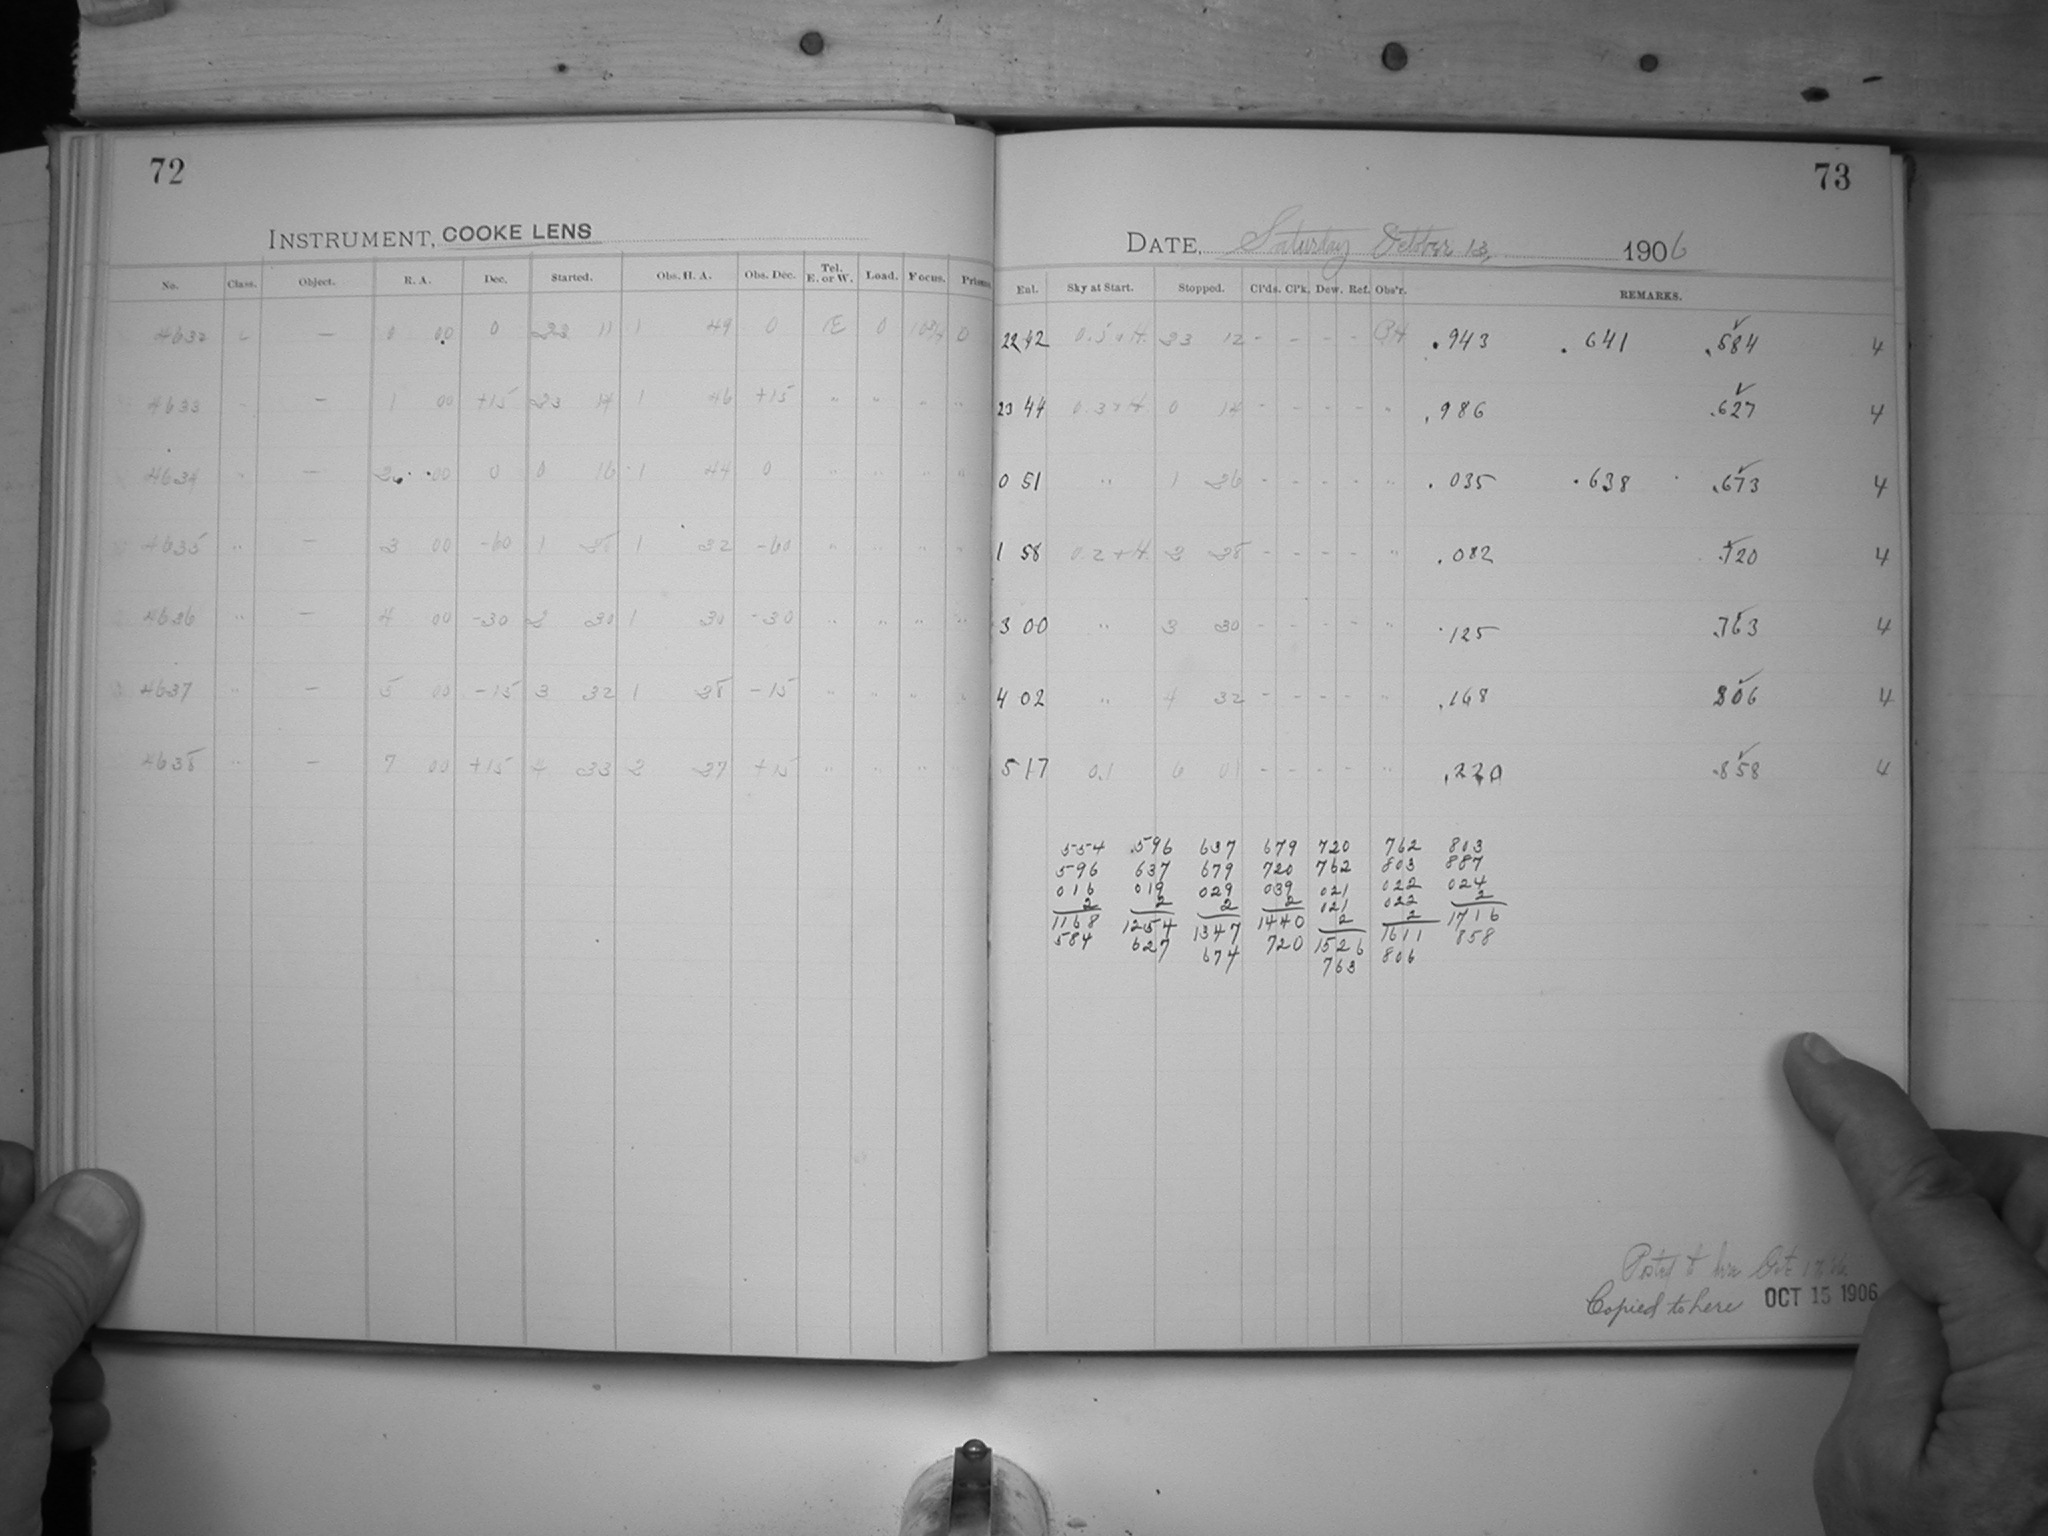 72
INSTRUMENT, COOKE LENS
No. Class. Object. R. A. Dec. Started. Obs. H. A. Obs. Dec. Tel. E. or W. Load. Focus. Prisms
4632 — 0 00 0 23 11 1 49 0 E 0 0
4633 — 1 00 +15 23 14 1 46 +15 " " " "
4634 — 00 0 0 16 1 44 0 " " " "
4635 " — 3 00 -60 1 28 1 32 -60 " " " "
4636 " — 4 00 -30 2 30 1 30 -30 " " " "
4637 " — 5 00 -15 3 32 1 28 -15 " " " "
4638 " — 7 00 +15 4 33 2 27 +15 " " "
73
DATE, Saturday October 13, 1906
Eul. Sky at Start. Stopped. Cl'ds. Cl'k. Dew. Ref. Obs'r. REMARKS.
22 42 23 12 - - - - .943 .641 .584 4
23 44 0 14 - - - - " .986 .627 4
0 51 " 1 26 - - - - " .035 .638 .673 4
1 58 0.2 + H. 2 28 - - - - " .082 .720 4
3 00 " 3 30 - - - - " .125 .763 4
4 02 " 4 32 - - - - " .168 806 4
5 17 0.1 6 01 - - - - " .220 .858 4
554 .596 637 679 720 762 803
596 637 679 720 762 803 887
016 019 029 039 021 022 024
2 2 2 2 021 022 2
1168 1254 1347 1440 2 2 1716
584 627 674 720 1526 1611 858
763 806
Posted to here Oct
Copied to here OCT 15 1906